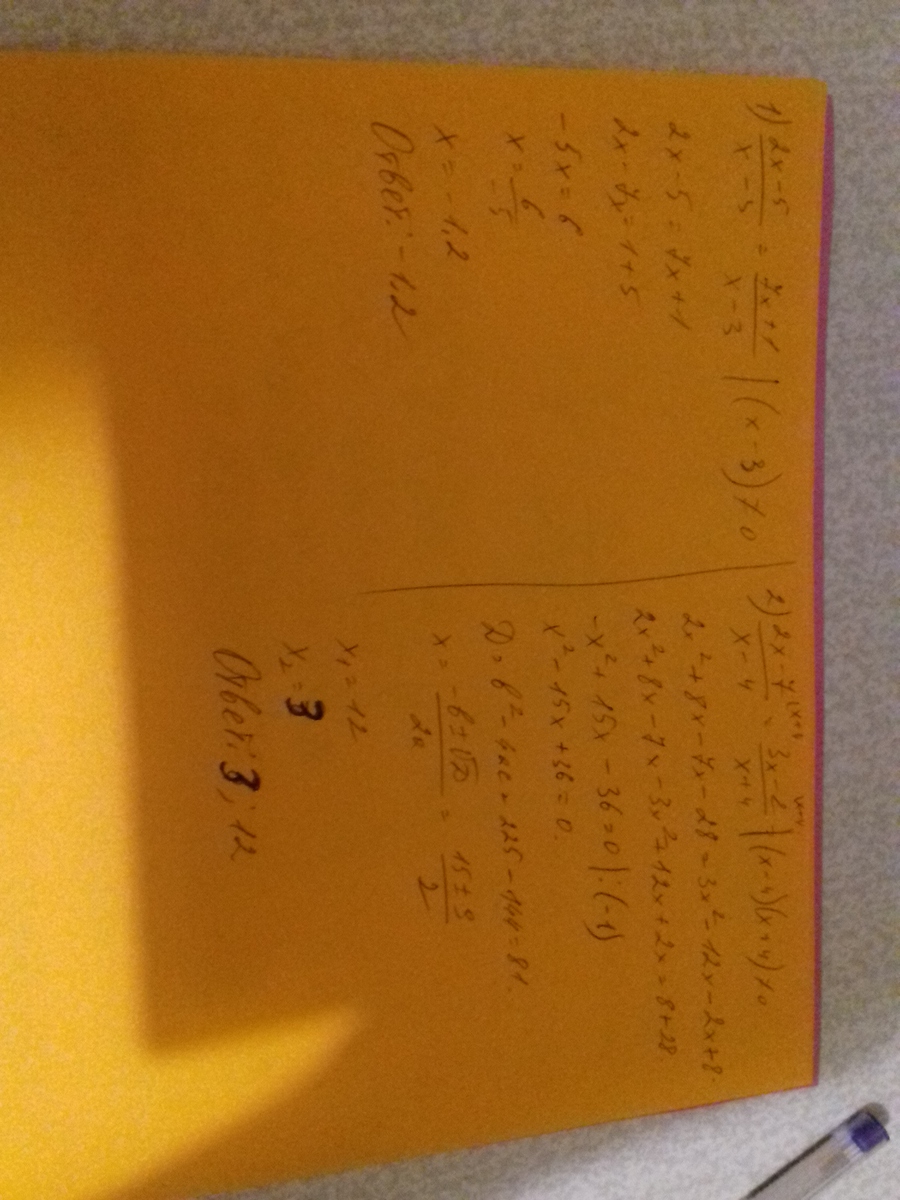 1) (2x-5)/(x-3) = (7x+1)/(x-3) | (x-3) ≠ 0
2x-5 = 7x+1
2x-7x = 1+5
-5x = 6
x = 6/-5
x = -1,2
Ответ: -1,2
2) (2x-7)/(x-4) = (3x-2)/(x+4) | (x-4)(x+4) ≠ 0
2x²+8x-7x-28 = 3x²-12x-2x+8
2x²+8x-7x-3x²+12x+2x = 8+28
-x²+15x-36=0 | :(-1)
x²-15x+36=0.
D = b²-4ac = 225-144=81.
x = (-b±√D)/2a = (15±9)/2
x₁ = 12
x₂ = 3
Ответ: 3; 12